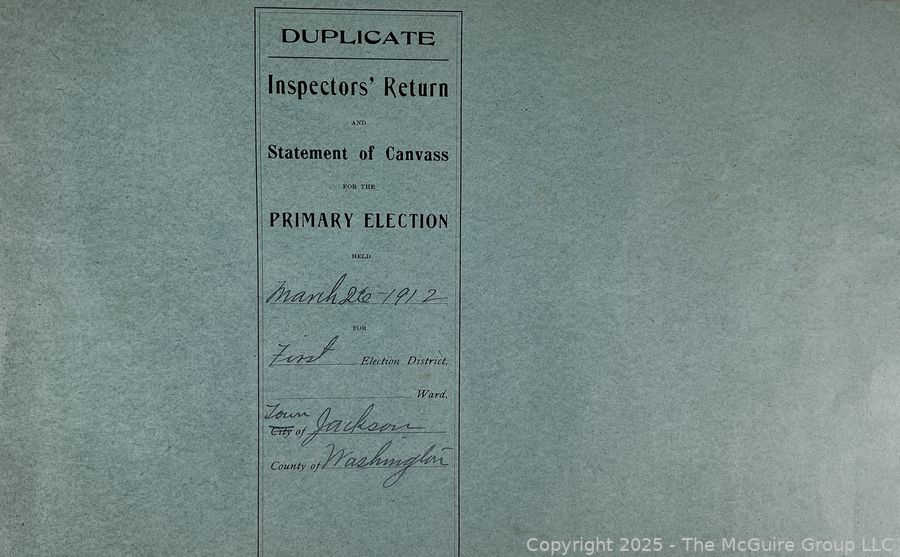 DUPLICATE
Inspectors' Return
AND
Statement of Canvass
FOR THE
PRIMARY ELECTION
HELD
March 26-1912
FOR
First Election District.
Ward,
Town
City of Jackson
County of Washington
Copyright 2025 - The McGuire Group LLC